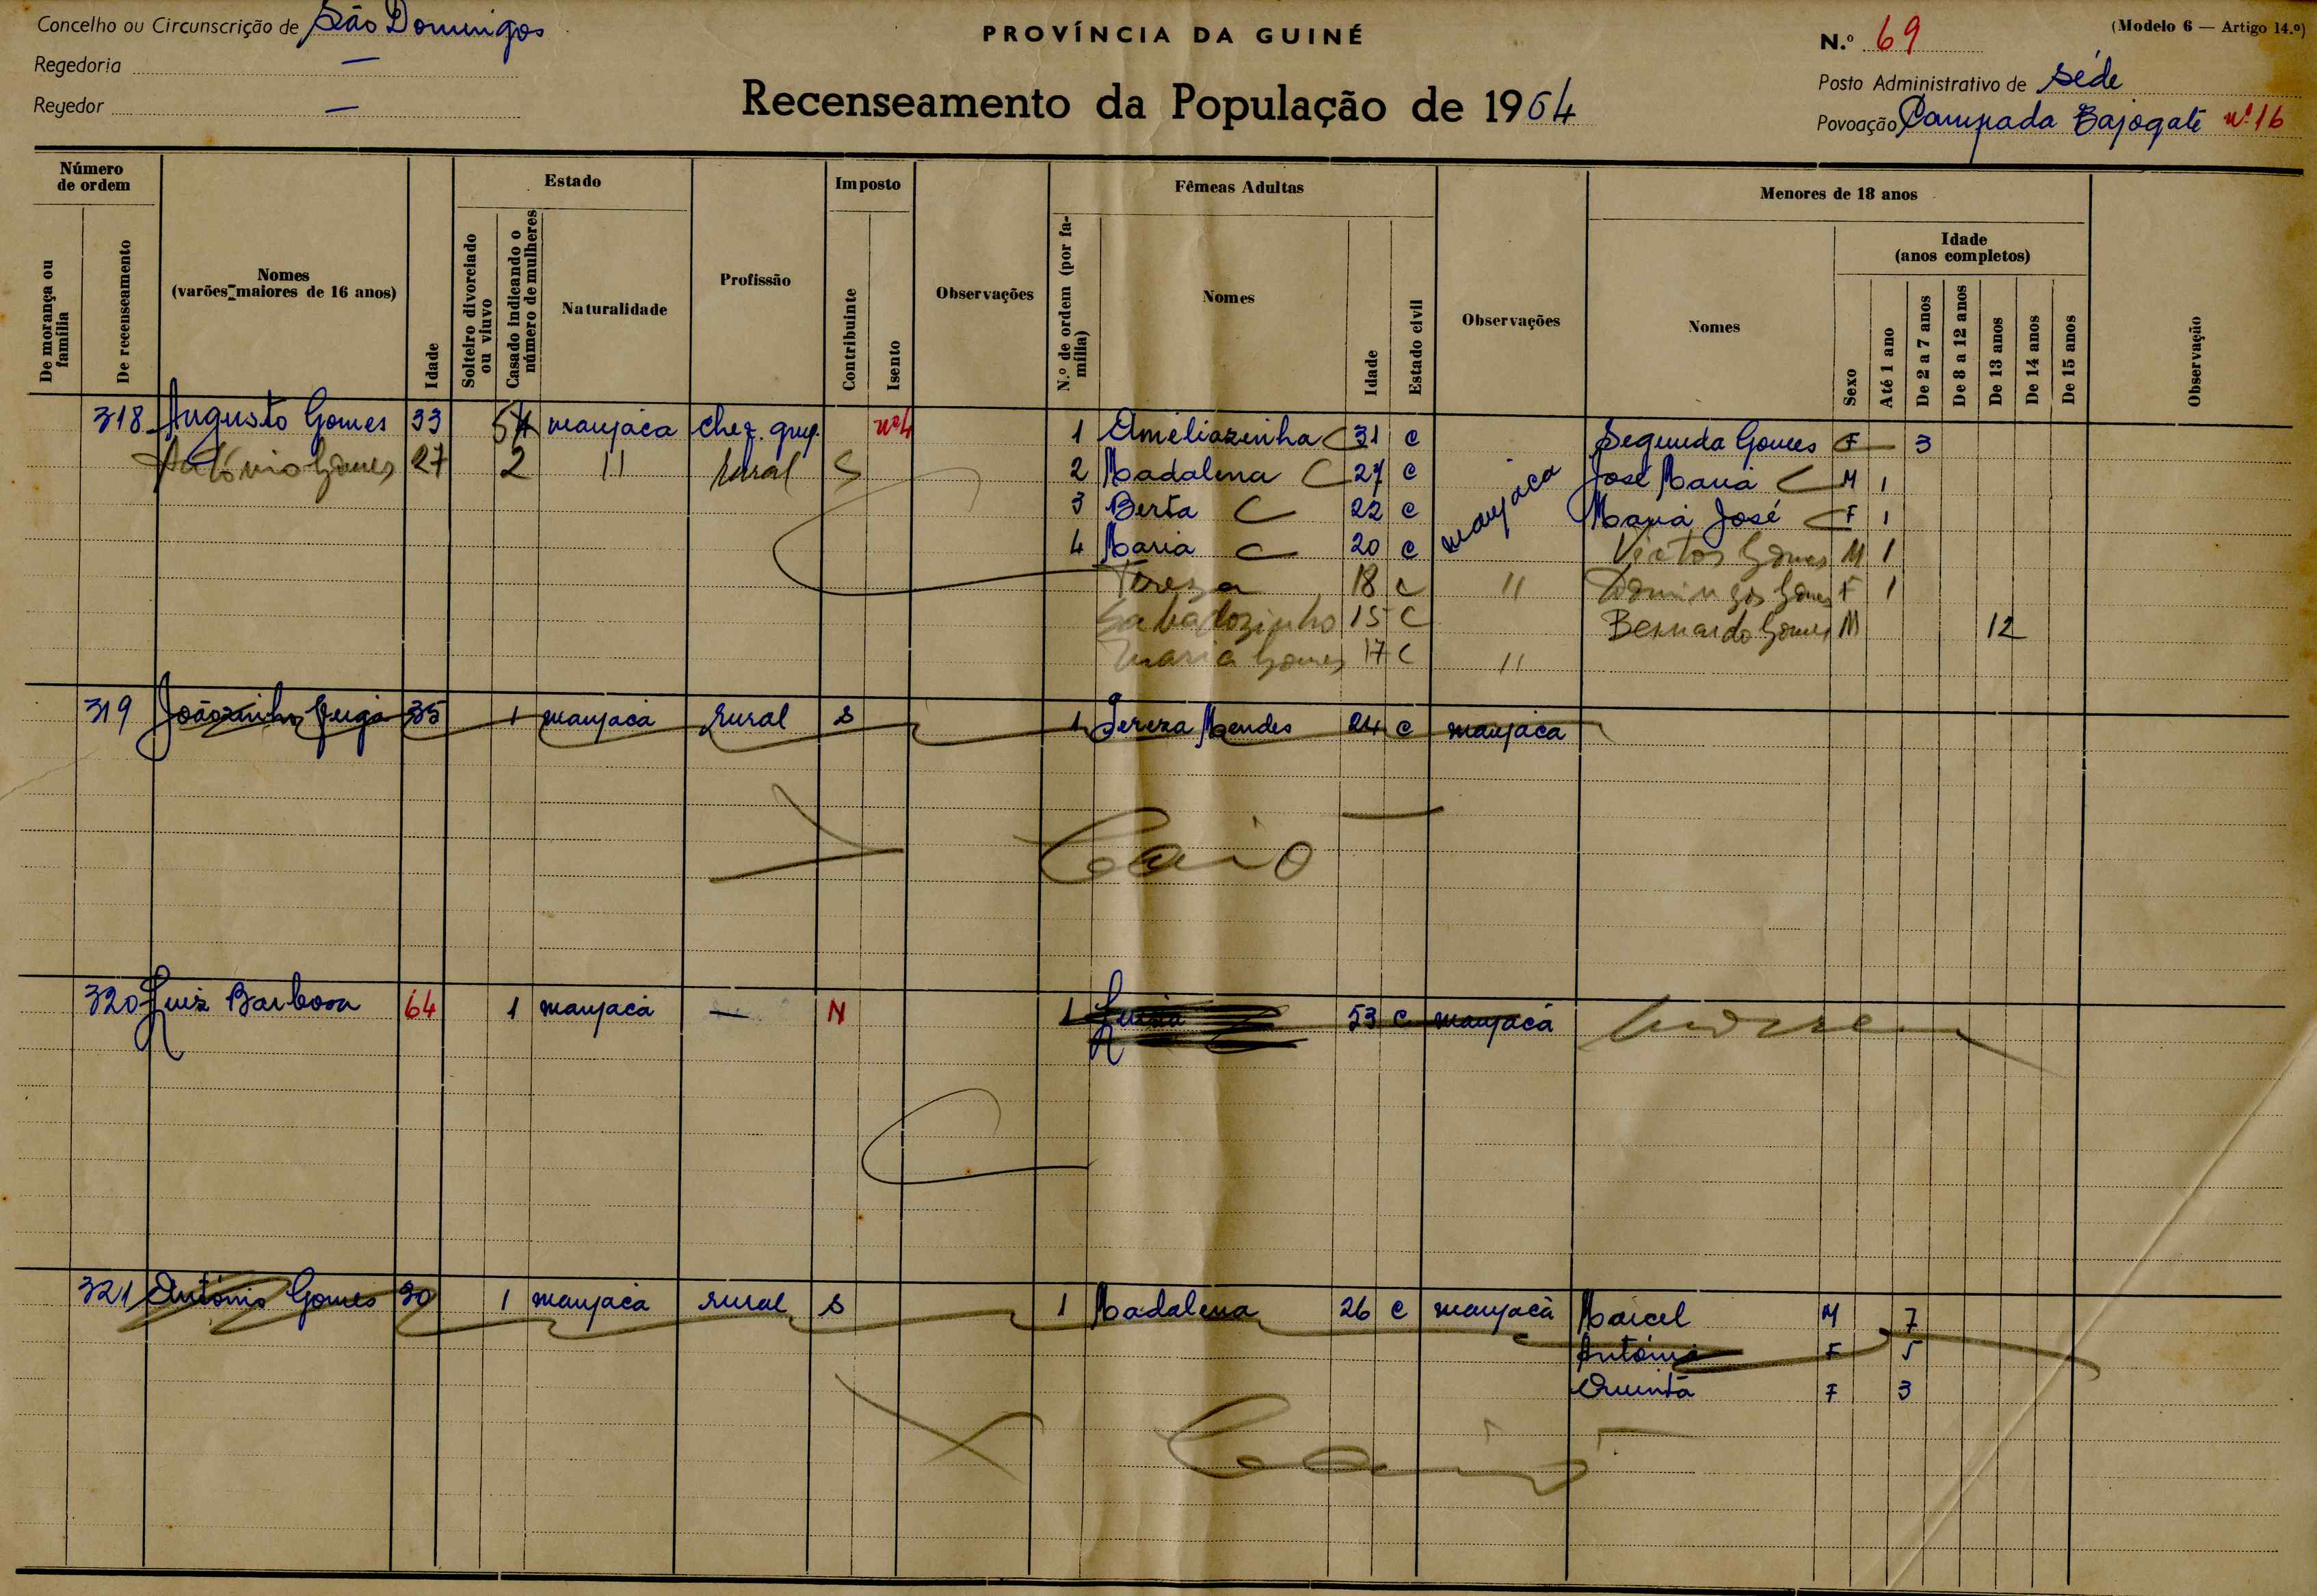 Concelho ou Circunscrição de São Domingos
Regedoria —
Regedor —
PROVÍNCIA DA GUINÉ
Recenseamento da População de 1964
(Modelo 6 — Artigo 14.º)
N.º 69
Posto Administrativo de Séde
Povoação Campada Bajogate nº 16
Número de ordem
De morança ou família
De recenseamento
Nomes (varões maiores de 16 anos)
Idade
Estado
Solteiro divorciado ou viuvo
Casado indicando o número de mulheres
Naturalidade
Profissão
Imposto
Contribuinte
Isento
Observações
Fêmeas Adultas
N.º de ordem (por família)
Nomes
Idade
Estado civil
Observações
Menores de 18 anos
Nomes
Sexo
Idade (anos completos)
Até 1 ano
De 2 a 7 anos
De 8 a 12 anos
De 13 anos
De 14 anos
De 15 anos
Observação
318 Augusto Gomes 33 5 manjaca nº4 1 Améliazinha 31 c Segunda Gomes F 3
António Gomes 27 2 11 rural S 2 Madalena 27 c manjaca José Maria M 1
3 Berta 22 c Maria José F 1
4 Maria 20 c Victor Gomes M 1
Tereza 18 c 11 Domingos Gomes F 1
Sabadozinho 15 C Bernardo Gomes M 12
Maria Gomes 17 C 11
319 Joãozinho 35 1 manjaca rural S 1 Tereza Mendes 24 c manjaca
Caió
320 Luiz Barbosa 64 1 manjaca — N 1 Luiza 53 c manjaca
321 António Gomes 30 1 manjaca rural S 1 Madalena 26 c manjaca Marcel M 7
António F 5
Quinta F 3
Caió